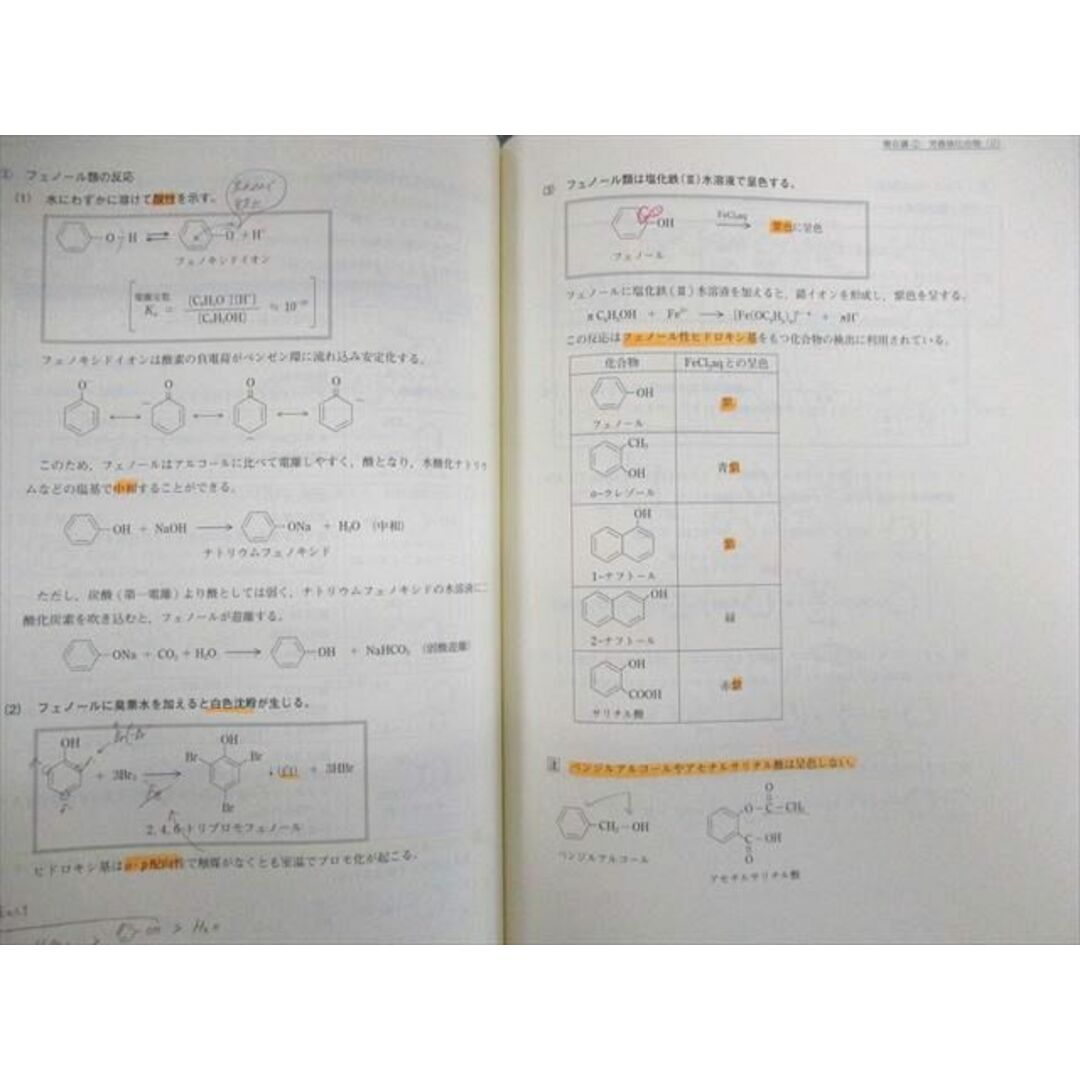 フェノール類の反応
(1) 水にわずかに溶けて酸性を示す。
O-H ⇌ O⁻ + H⁺
フェノキシドイオン
電離定数
Kₐ = [C₆H₅O⁻][H⁺] / [C₆H₅OH] ≒ 10⁻¹⁰
フェノキシドイオンは酸素の負電荷がベンゼン環に流れ込み安定化する。
O⁻ ⟷ O ⟷ O ⟷ O
このため、フェノールはアルコールに比べて電離しやすく、酸となり、水酸化ナトリウ
ムなどの塩基で中和することができる。
OH + NaOH ⟶ ONa + H₂O (中和)
ナトリウムフェノキシド
ただし、炭酸(第一電離)より酸としては弱く、ナトリウムフェノキシドの水溶液に二
酸化炭素を吹き込むと、フェノールが遊離する。
ONa + CO₂ + H₂O ⟶ OH + NaHCO₃ (弱酸遊離)
(2) フェノールに臭素水を加えると白色沈殿が生じる。
OH + 3Br₂ ⟶ OH Br Br Br ↓(白) + 3HBr
2,4,6-トリブロモフェノール
ヒドロキシ基はo-p配向性で触媒がなくとも室温でブロモ化が起こる。
(3) フェノール類は塩化鉄(Ⅲ)水溶液で呈色する。
OH FeCl₃aq ⟶ 紫色に呈色
フェノール
フェノールに塩化鉄(Ⅲ)水溶液を加えると、錯イオンを形成し、紫色を呈する。
nC₆H₅OH + Fe³⁺ ⟶ [Fe(OC₆H₅)ₙ]³⁻ⁿ + nH⁺
この反応はフェノール性ヒドロキシ基をもつ化合物の検出に利用されている。
化合物 FeCl₃aqとの呈色
OH
フェノール 紫
CH₃
OH
o-クレゾール 青紫
OH
1-ナフトール 紫
OH
2-ナフトール 緑
OH
COOH
サリチル酸 赤紫
注 ベンジルアルコールやアセチルサリチル酸は呈色しない。
CH₂-OH
ベンジルアルコール
O-C-CH₃
O
C-OH
O
アセチルサリチル酸